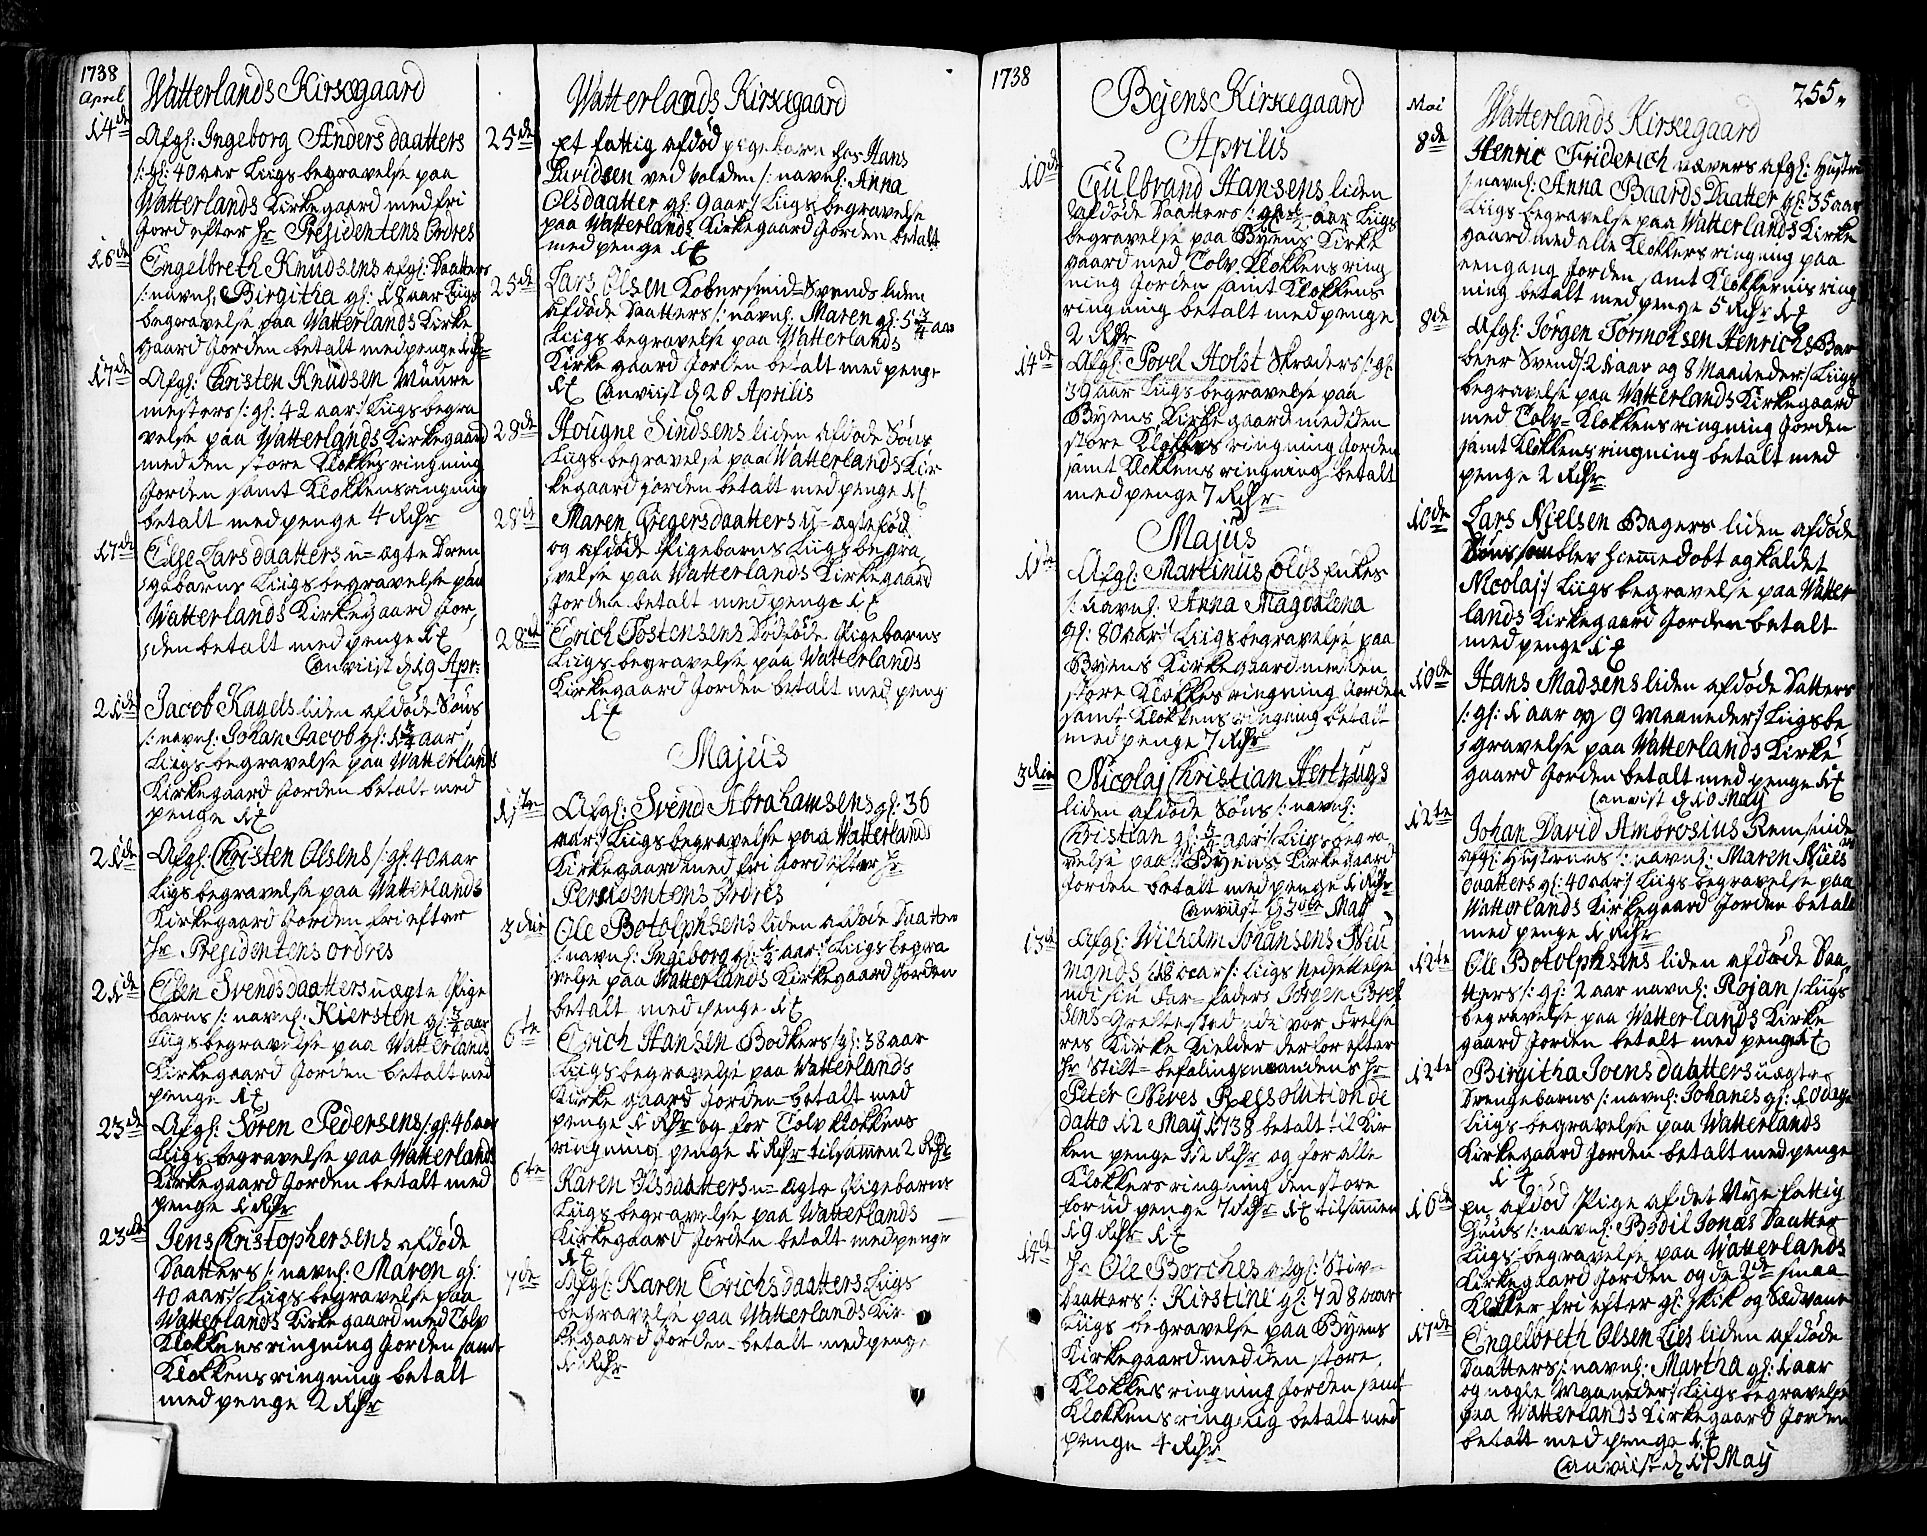 1738
April
Watterlands Kirkegaard
14de
Afgl: Ingeborg Andersdaatters
/: gl: 40 aar Liigs begravelse paa
Watterlands Kirkegaard med fri
Jord efter Hr Presidentens Ordres
16de
Engelbreth Knudsens afgl: Daatters
/: navnl: Birgitha gl: 18 aar Liigs
begravelse paa Watterlands Kirke
gaard Jorden betalt med penge 1 Rdr
17de
Afgl: Christen Knudsen Muure
mesters /: gl: 42 aar:/ Liigs begra
velse paa Watterlands Kirkegaard
med den store Klokkes ringning
Jorden samt Klokkens ringning
betalt med penge 4 Rdr
17de
Else Larsdaatters u=ægte Dren
gebarns Liigs begravelse paa
Watterlands Kirkegaard Jor
den betalt med penge
Anviist d 19 Apr:
21de
Jacob Kagels liden afdøde Søns
/: navnl: Johan Jacob gl: 1 3/4 aar
Liigs begravelse paa Watterlands
Kirkegaard Jorden betalt med
penge
21de
Afgl: Christen Olsens /: gl: 40 aar
Liigs begravelse paa Watterlands
Kirkegaard Jorden fri efter
Hr Presidentens ordres
21de
Ellen Svendsdaatters uægte Pige
barns /: navnl: Kiersten gl: 3/4 aar
Liigs begravelse paa Watterlands
Kirkegaard Jorden betalt med
penge
23de
Afgl: Sören Pedersens /: gl: 46 aar
Liigs begravelse paa Watterlands
Kirkegaard Jorden betalt med
penge 1 Rdr
23de
Jens Christophersens afdøde
Daatters /: navnl: Maren gl:
40 aar:/ Liigs begravelse paa
Watterlands Kirkegaard med Tolv
Klokkens ringning Jorden samt
Klokkens ringning betalt
med penge 2 Rdr
Watterlands Kirkegaard
25de
Et fattig afdød pigebarn hos Hans
Davidsen ved Volden /: navnl: Anna
Olsdaatter gl: 9 aar:/ Liigs begravelse
paa Watterlands Kirkegaard Jorden betalt
med penge
25de
Lars Olsen Kobersmid=Svends liden
afdøde Daatters /: navnl: Maren gl: 5 3/4 aar
Liigs begravelse paa Watterlands
Kirkegaard Jorden betalt med penge
Anviist d 28 Aprilis
28de
Hougne Sindsens liden afdøde Søns
Liigs begravelse paa Watterlands Kir
kegaard jorden betalt med penge
28de
Maren Giegersdaatters U=ægte fød
og afdøde Pigebarns Liigs begra
velse paa Watterlands Kirkegaard
Jorden betalt med penge
28de
Erich Tostensens Dødføde Pigebarns
Liigs begravelse paa Watterlands
Kirkegaard Jorden betalt med peng
Majus
1ste
Afgl: Svend Abrahamsens gl: 36
aar:/ Liigs begravelse paa Watterlands
Kirkegaard med fri Jord efter Hr
Persidentens Ordres
3die
Ole Botolphsens liden afdøde Daatters
/: navnl: Ingeborg gl: 1/2 aar:/ Liigs begra
velse paa Watterlands Kirkegaard Jorden
betalt med penge
6te
Erich Hansen Bødkers /: gl: 38 aar
Liigs begravelse paa Watterlands
Kirkegaard Jorden betalt med
penge 1 Rdr og for Tolv Klokkens
ringning penge 1 Rdr tilsamen 2 Rdr
6te
Karen Olsdaatters u=ægte Pigebarns
Liigs begravelse paa Watterlands
Kirkegaard Jorden betalt med penge
7de
Afgl: Karen Erichsdaatters Liigs
begravelse paa Watterlands Kir
kegaard Jorden betalt med penge
1 Rdr
1738
Byens Kirkegaard
Aprilis
10de
Gulbrand Hansens liden
afdøde Daatters /: gl: aar Liigs
begravelse paa Byens Kirke
gaard med Tolv Klokkens ring
ning Jorden samt Klokkens
ringning betalt med penge
2 Rdr
14de
Afgl: Povel Holst Skræders /: gl:
39 aar Liigs begravelse paa
Byens Kirkegaard med den
store Klokkes ringning Jorden
samt Klokkens ringning betalt
med penge 7 Rdr
Majus
1ste
Afgl: Martinus Olds Enkes
/: navnl: Anna Magdalena
gl: 80 aar:/ Liigs begravelse paa
Byens Kirkegaard med den
store Klokkes ringning Jorden
samt Klokkens ringning betalt
med penge 7 Rdr
3die
Nicolaj Christian Hertzugs
liden afdøde Søns /: navnl:
Christian gl: aar:/ Liigs begra
velse paa Byens Kirkegaard
Jorden betalt med penge 1 Rdr
Anviist d 3die Maij
13de
Afgl: Wilhelm Johansens Neu
mands aar /: Liigs Nedsettelse
udi sin Far=faders Jörgen
sens Grafsted udi vor Frelse
res Kirke Kielder derfor efter
Hr Stift=befalingsmandens Hr
Peter Neves Ressolution de
datto 12 Maij 1738 betalt til Kir
ken penge 12 Rdr og for alle
Klokkers ringning den store
forud penge 7 Rdr tilsammen
19 Rdr
14de
Hr Ole Borches afgl: Stiv=
Daatters /: Kirstine gl: 7 à 8 aar
Liigs begravelse paa Byens
Kirkegaard med den store
Klokkes ringning Jorden samt
Klokkens ringning betalt med
penge 4 Rdr
255
Mai
Watterlands Kirkegaard
8de
Henric Friderich vævers afgl: Hustru
/: navnl: Anna Baards Daatter gl: 35 aar
Liigs begravelse paa Watterlands Kirke
gaard med alle Klokkers ringning paa
eengang Jorden samt Klokkernis ring
ning betalt med penge 5 Rdr
8de
Afgl: Jörgen Tormolsen Henrichs Bar
beer Svend /: 21 aar og 8 Maaneder:/ Liigs
begravelse paa Watterlands Kirkegaard
med Tolv=Klokkens ringning Jorden
samt Klokkens ringning betalt med
penge 2 Rdr
10de
Lars Nielsen Bagers liden afdøde
Søns som blev hjemmedøbt og kaldet
Nicolaj:/ Liigs begravelse paa Watter
lands Kirkegaard Jorden betalt
med penge
10de
Hans Madsens liden afdøde Datters
/: gl: 1 aar og 9 Maaneder:/ Liigs be
gravelse paa Watterlands Kirke
gaard Jorden betalt med penge
Anviist d 10 Maij
12te
Johan David Ambrosius Remsnider
afgl: Hustrues /: navnl: Maren Niels
Daatters gl: 40 aar:/ Liigs begravelse paa
Watterlands Kirkegaard Jorden betalt
med penge 1 Rdr
12te
Ole Botolphsens liden afdøde Daa
tters /: gl: 2 aar navnl: Rojan / Liigs
begravelse paa Watterlands Kirke
gaard Jorden betalt med penge
12te
Birgitha Joensdaatters uægte
Drengebarns /: navnl: Johanes gl: 10 dage
Liigs begravelse paa Watterlands
Kirkegaard Jorden betalt med penge
16de
En afdød Pige af det Nye fattig
Huus /: navnl: Bodil Jonas Daatter
Liigs begravelse paa Watterlands
Kirkegaard Jorden og de 2de smaa
Klokker fri efter gl: skik og Sædvane
17de
Engelbreth Olsen Lies liden afdøde
Daatters /: navnl: Martha gl: 1 aar
og nogle Maaneder:/ Liigs begravelse
paa Watterlands Kirkegaard Jorden
betalt med penge
Anviist d 17 Maij